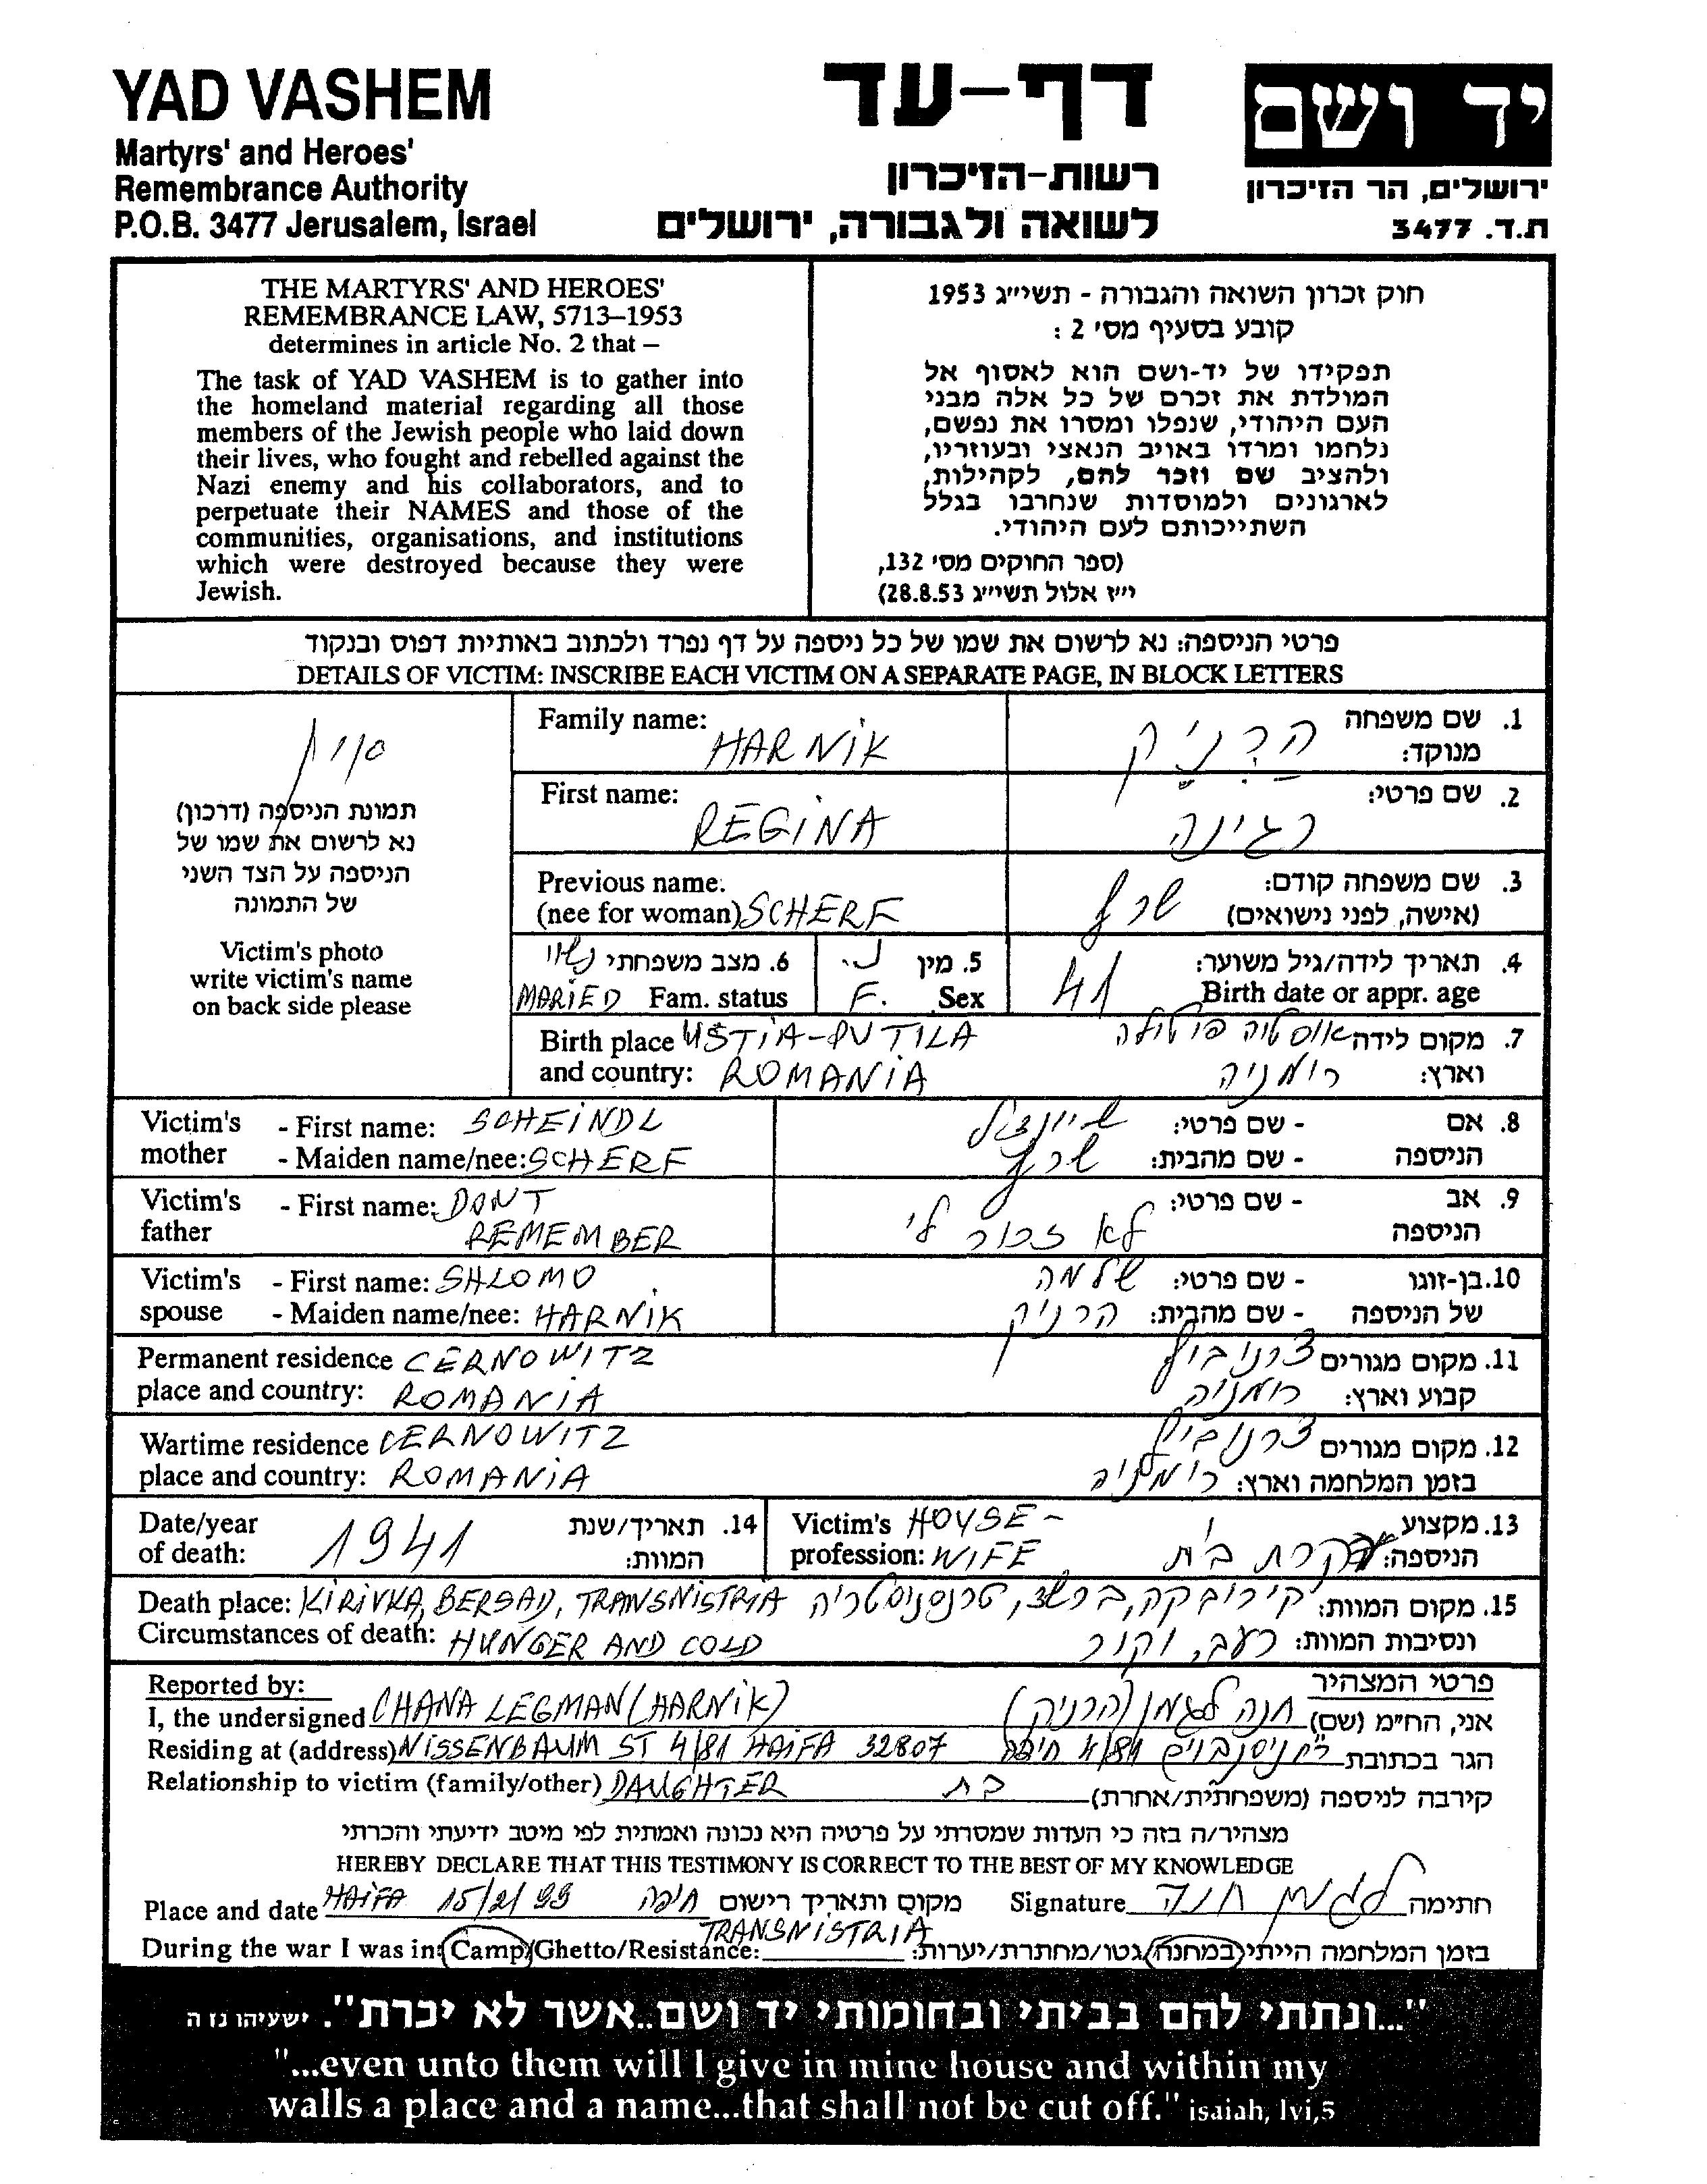 YAD VASHEM
Martyrs' and Heroes'
Remembrance Authority
P.O.B. 3477 Jerusalem, Israel
דף-עד
רשות-הזיכרון
לשואה ולגבורה, ירושלים
יד ושם
ירושלים, הר הזיכרון
ת.ד. 3477
THE MARTYRS' AND HEROES'
REMEMBRANCE LAW, 5713–1953
determines in article No. 2 that –
The task of YAD VASHEM is to gather into
the homeland material regarding all those
members of the Jewish people who laid down
their lives, who fought and rebelled against the
Nazi enemy and his collaborators, and to
perpetuate their NAMES and those of the
communities, organisations, and institutions
which were destroyed because they were
Jewish.
חוק זכרון השואה והגבורה - תשי״ג 1953
קובע בסעיף מס׳ 2 :
תפקידו של יד-ושם הוא לאסוף אל
המולדת את זכרם של כל אלה מבני
העם היהודי, שנפלו ומסרו את נפשם,
נלחמו ומרדו באויב הנאצי ובעוזריו,
ולהציב שם וזכר להם, לקהילות,
לארגונים ולמוסדות שנחרבו בגלל
השתייכותם לעם היהודי.
(ספר החוקים מס׳ 132,
י״ז אלול תשי״ג 28.8.53)
פרטי הניספה: נא לרשום את שמו של כל ניספה על דף נפרד ולכתוב באותיות דפוס ובנקוד
DETAILS OF VICTIM: INSCRIBE EACH VICTIM ON A SEPARATE PAGE, IN BLOCK LETTERS
תמונת הניספה (דרכון)
נא לרשום את שמו של
הניספה על הצד השני
של התמונה
Victim's photo
write victim's name
on back side please
Family name: HARNIK
1. שם משפחה מנוקד: הַרְנִיק
First name: REGINA
2. שם פרטי: רגינה
Previous name: (nee for woman) SCHERF
3. שם משפחה קודם: (אישה, לפני נישואים) שרף
6. מצב משפחתי נשוי
MARIED Fam. status
5. מין נ.
F. Sex
4. תאריך לידה/גיל משוער:
Birth date or appr. age 41
Birth place USTIA-PUTILA
and country: ROMANIA
7. מקום לידה אוסטיה פוטילה
וארץ: רומניה
Victim's mother - First name: SCHEINDL
- Maiden name/nee: SCHERF
8. אם הניספה - שם פרטי: שיינדל
- שם מהבית: שרף
Victim's father - First name: DONT REMEMBER
9. אב הניספה - שם פרטי: לא זכור לי
Victim's spouse - First name: SHLOMO
- Maiden name/nee: HARNIK
10. בן-זוגו של הניספה - שם פרטי: שלמה
- שם מהבית: הרניק
Permanent residence CERNOWITZ
place and country: ROMANIA
11. מקום מגורים צרנוביץ
קבוע וארץ: רומניה
Wartime residence CERNOWITZ
place and country: ROMANIA
12. מקום מגורים צרנוביץ
בזמן המלחמה וארץ: רומניה
Date/year of death: 1941
14. תאריך/שנת המוות:
Victim's profession: HOUSE-WIFE
13. מקצוע הניספה: עקרת בית
Death place: KIRIVKA, BERSAD, TRANSNISTRIA
15. מקום המוות: קירובקה, ברשד, טרנסניסטריה
Circumstances of death: HUNGER AND COLD
ונסיבות המוות: רעב, וקור
Reported by:
פרטי המצהיר
I, the undersigned CHANA LEGMAN (HARNIK)
אני, הח״מ (שם) חנה לגמן (הרניק)
Residing at (address) NISSENBAUM ST 4/81 HAIFA 32807
הגר בכתובת רח ניסנבוים 4/81 חיפה
Relationship to victim (family/other) DAUGHTER
קירבה לניספה (משפחתית/אחרת) בת
מצהיר/ה בזה כי העדות שמסרתי על פרטיה היא נכונה ואמתית לפי מיטב ידיעתי והכרתי
HEREBY DECLARE THAT THIS TESTIMONY IS CORRECT TO THE BEST OF MY KNOWLEDGE
Place and date HAIFA 15/2/99
מקום ותאריך רישום חיפה
Signature לגמן חנה חתימה
During the war I was in: Camp/Ghetto/Resistance: TRANSNISTRIA
בזמן המלחמה הייתי במחנה/גטו/מחתרת/יערות:
"...ונתתי להם בביתי ובחומותי יד ושם..אשר לא יכרת". ישעיהו נו ה
"...even unto them will I give in mine house and within my
walls a place and a name...that shall not be cut off." isaiah, lvi,5